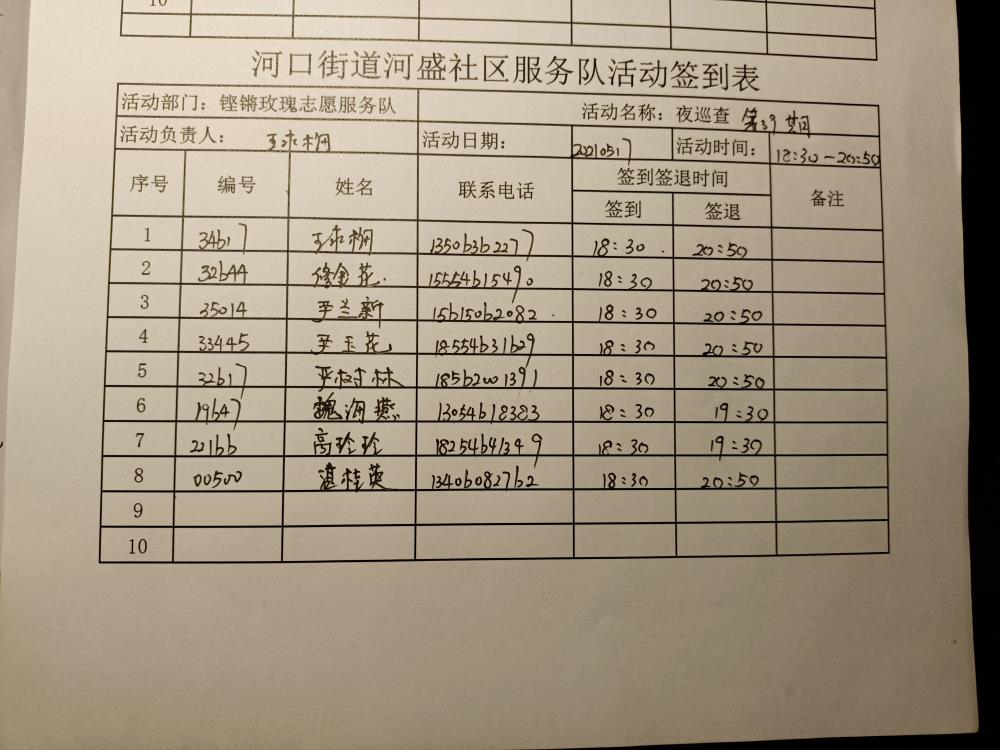 10
河口街道河盛社区服务队活动签到表
活动部门：铿锵玫瑰志愿服务队 活动名称：夜巡查 第39期
活动负责人： 活动日期： 20210517 活动时间： 18:30-20:50
序号 编号 姓名 联系电话 签到签退时间 备注
签到 签退
1 34617 13506362277 18:30 20:50
2 32644 修金花 15554615490 18:30 20:50
3 35014 尹兰新 15615062082 18:30 20:50
4 33445 尹玉花 18554631629 18:30 20:50
5 32617 尹树林 18562001391 18:30 20:50
6 19647 魏海燕 13054618383 18:30 19:30
7 22166 高玲玲 18254641349 18:30 19:30
8 00500 湛桂英 13406082762 18:30 20:50
9
10